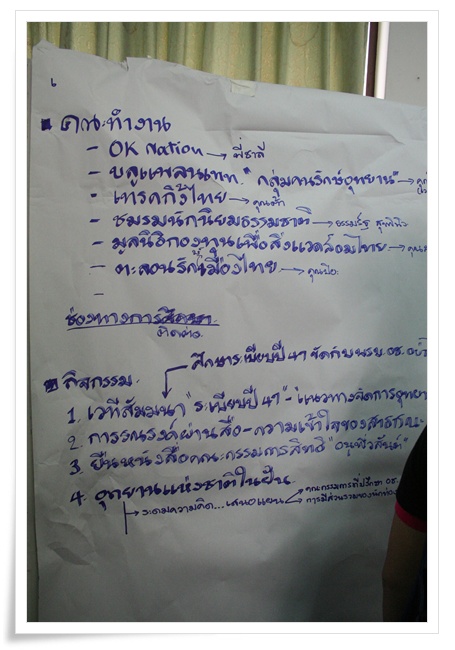 คณะทำงาน
- OK Nation → พี่ชาลี
- บลูแพลนเทท "กลุ่มคนรักษ์อุทยาน" →
- เทรคกิ้งไทย →
- ชมรมนักนิยมธรรมชาติ →
- มูลนิธิกองทุนเพื่อสิ่งแวดล้อมไทย →
- ตะลอนรักเมืองไทย →
-
ช่องทางการศึกษา
ติดต่อ
ศึกษาระเบียบปี 47
กิจกรรม
1. เวทีสัมมนา "ระเบียบปี 47" - แนวทางจัดการอุทยา
2. การรณรงค์ผ่านสื่อ - ความเข้าใจของสาธารณะ
3. ยื่นหนังสือคณะกรรมการสิทธิ
4. อุทยานแห่งชาติในฝัน
→ ระดมความคิด... เสนอแผน
คณะกรรมการที่ปรึกษา อช.
การมีส่วนร่วมของ